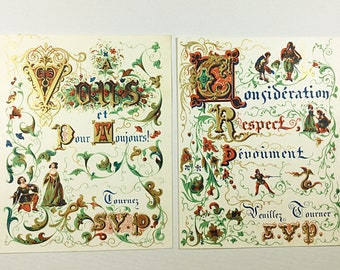 A
Vous
et
Pour Toujours!
Tournez
S.V.P.
Considération
Respect,
Dévoument
Veuillez Tourner
S V P